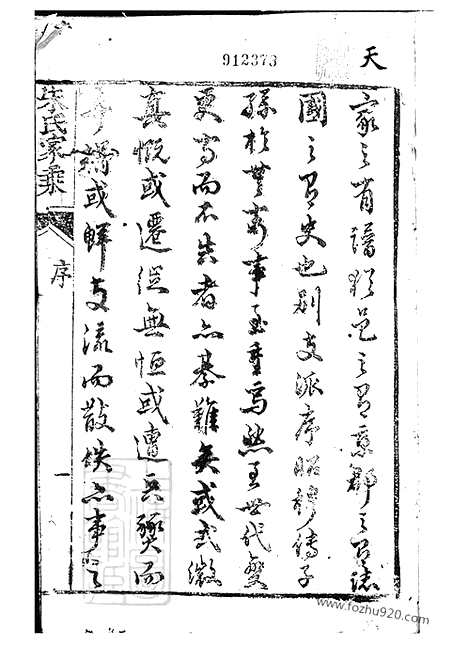 天
912373
家之有譜猶邑之有乘郡之有誌
國之有史也別支派序昭穆傳子
孫於無窮事至重焉然至世代變
更寫而不失者亦綦難矣或式微
莫慨或遷徙無恒或遭兵燹而
或鮮支流而散佚亦事之
宋氏家乘
序
一
www.fozhu920.com